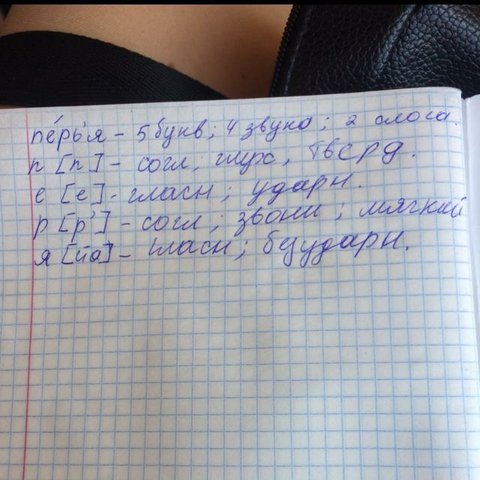 пе́рья - 5 букв; 4 звука; 2 слога.
п [п] - согл, глух, тверд.
е [е] - гласн; ударн.
р [р'] - согл; звонк; мягкий
я [йа] - гласн; безударн.